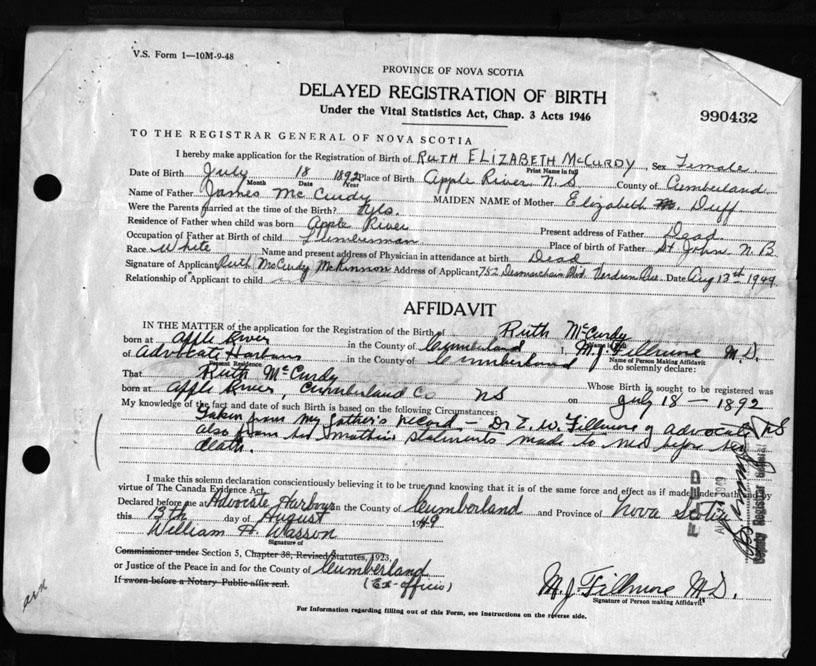 V.S. Form 1—10M-9-48
PROVINCE OF NOVA SCOTIA
DELAYED REGISTRATION OF BIRTH
Under the Vital Statistics Act, Chap. 3 Acts 1946
990432
TO THE REGISTRAR GENERAL OF NOVA SCOTIA
I hereby make application for the Registration of Birth of RUTH ELIZABETH McCURDY, Sex Female
Print Name in full
Date of Birth July 18 1892 Place of Birth Apple River N.S County of Cumberland
Month Date Year
Name of Father James McCurdy MAIDEN NAME of Mother Elizabeth Duff
Were the Parents married at the time of the Birth? Yes.
Residence of Father when child was born Apple River Present address of Father Dead
Occupation of Father at Birth of child Lumberman Place of birth of Father St. John N.B
Race White Name and present address of Physician in attendance at birth Dead
Signature of Applicant Ruth McCurdy McKinnon Address of Applicant 752 Blvd. Verdun Que. Date Aug 12th 1949.
Relationship of Applicant to child
AFFIDAVIT
IN THE MATTER of the application for the Registration of the Birth of Ruth McCurdy
born at Apple River in the County of Cumberland I, M.J. Fillmore M.D.
Name of Person Making Affidavit
of Advocate Harbour in the County of Cumberland do solemnly declare:
Present Residence
That Ruth McCurdy Whose Birth is sought to be registered was
born at Apple River, Cumberland Co NS on July 18 — 1892
My knowledge of the fact and date of such Birth is based on the following Circumstances:
Taken from my father's record — Dr E. W. Fillmore of Advocate NS
also from her mother's statements made to me before her
death.
I make this solemn declaration conscientiously believing it to be true and knowing that it is of the same force and effect as if made under oath and by
virtue of The Canada Evidence Act.
Declared before me at Advocate Harbour in the County of Cumberland and Province of Nova Scotia
this 13th day of August 1949
William H. Wasson
Signature of
Commissioner under Section 5, Chapter 38, Revised Statutes, 1923,
or Justice of the Peace in and for County of Cumberland
If sworn before a Notary Public affix seal. (Ex-officio)
M.J. Fillmore M.D.
Signature of Person making Affidavit
For Information regarding filling out of this Form, see Instructions on the reverse side.
FILED
Deputy Registrar General